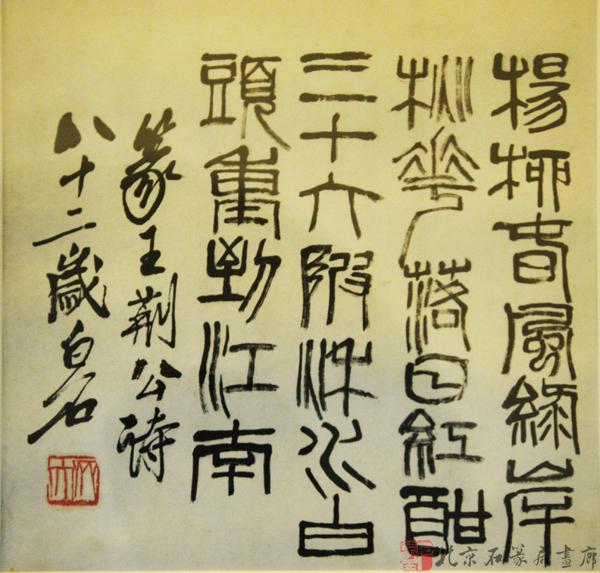 楊柳春風綠岸
桃花落日紅酣
三十六陂流水白
頭重到江南
篆王荊公詩
八十二歲白石
北京石篆畫廊